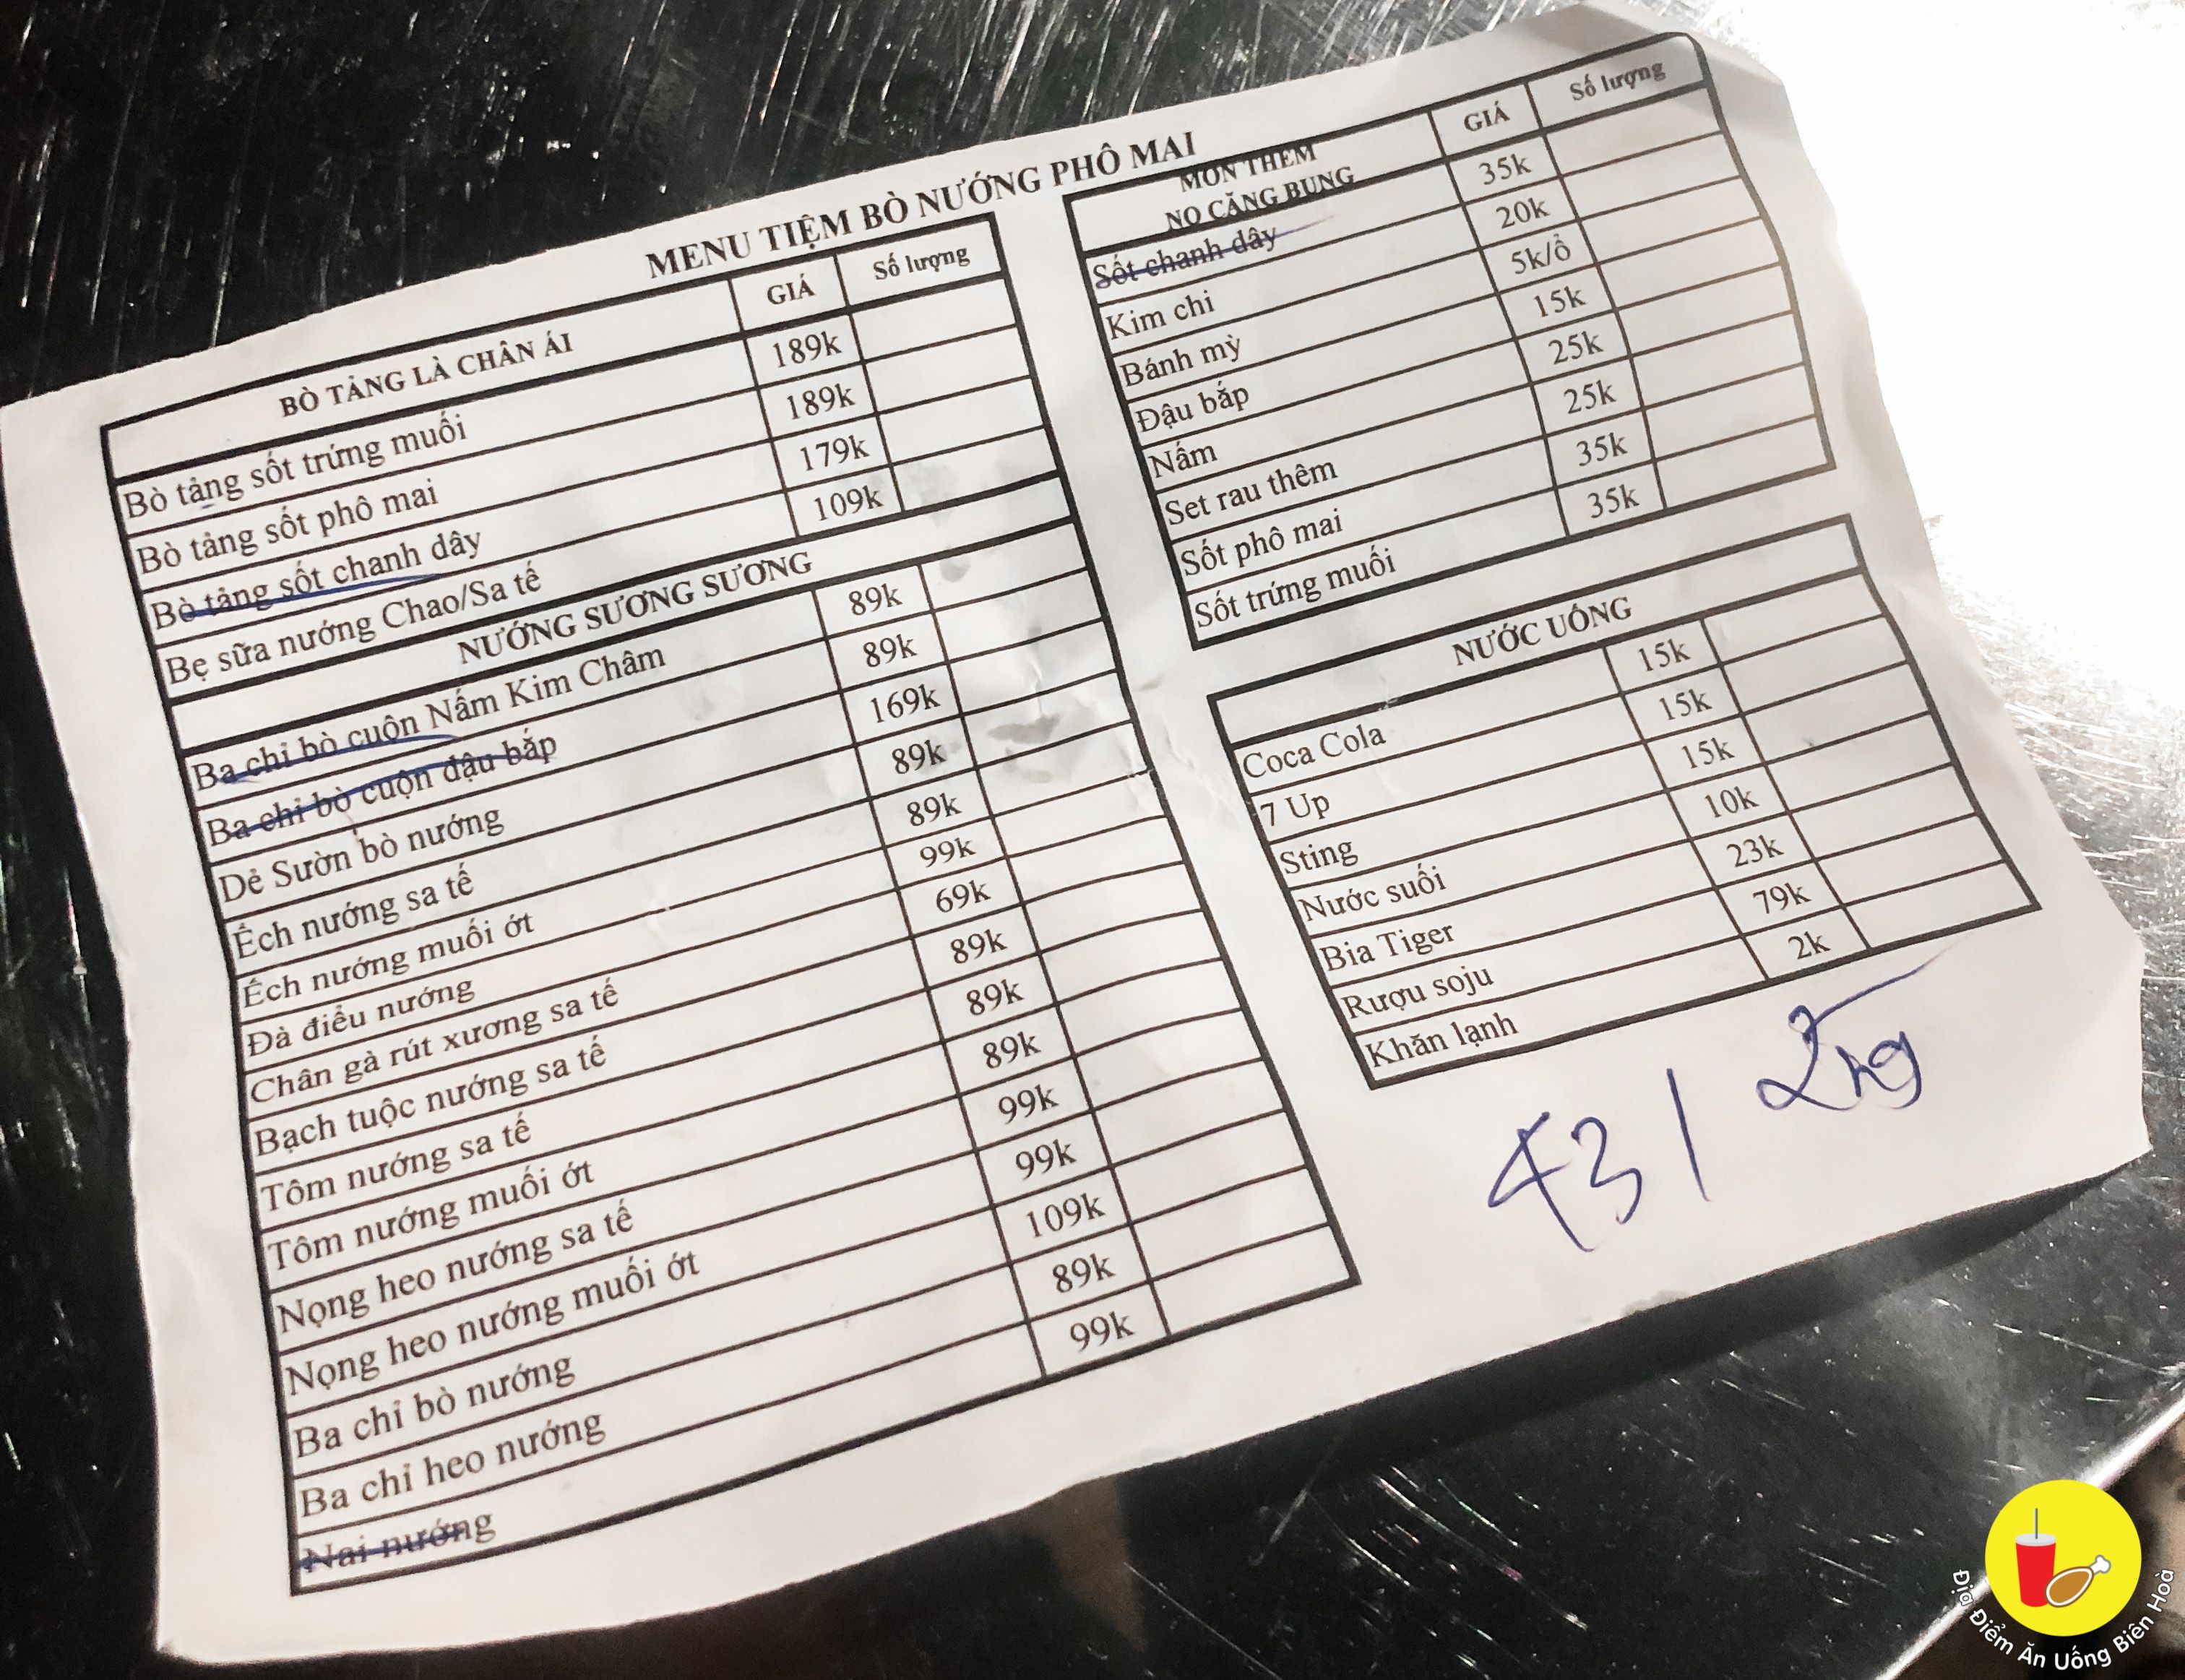 MENU TIỆM BÒ NƯỚNG PHÔ MAI
BÒ TẢNG LÀ CHÂN ÁI GIÁ Số lượng
Bò tảng sốt trứng muối 189k
Bò tảng sốt phô mai 189k
Bò tảng sốt chanh dây 179k
Bẹ sữa nướng Chao/Sa tế 109k
NƯỚNG SƯƠNG SƯƠNG
Ba chỉ bò cuộn Nấm Kim Châm 89k
Ba chỉ bò cuộn đậu bắp 89k
Dẻ Sườn bò nướng 169k
Ếch nướng sa tế 89k
Ếch nướng muối ớt 89k
Đà điểu nướng 99k
Chân gà rút xương sa tế 69k
Bạch tuộc nướng sa tế 89k
Tôm nướng sa tế 89k
Tôm nướng muối ớt 89k
Nọng heo nướng sa tế 99k
Nọng heo nướng muối ớt 99k
Ba chỉ bò nướng 109k
Ba chỉ heo nướng 89k
Nai nướng 99k
MÓN THÊM
NO CĂNG BỤNG GIÁ Số lượng
Sốt chanh dây 35k
Kim chi 20k
Bánh mỳ 5k/ổ
Đậu bắp 15k
Nấm 25k
Set rau thêm 25k
Sốt phô mai 35k
Sốt trứng muối 35k
NƯỚC UỐNG
Coca Cola 15k
7 Up 15k
Sting 15k
Nước suối 10k
Bia Tiger 23k
Rượu soju 79k
Khăn lạnh 2k
43 /
Địa Điểm Ăn Uống Biên Hoà